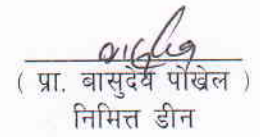 ( प्रा. बासुदेव पौखेल )
निमित्त डीन